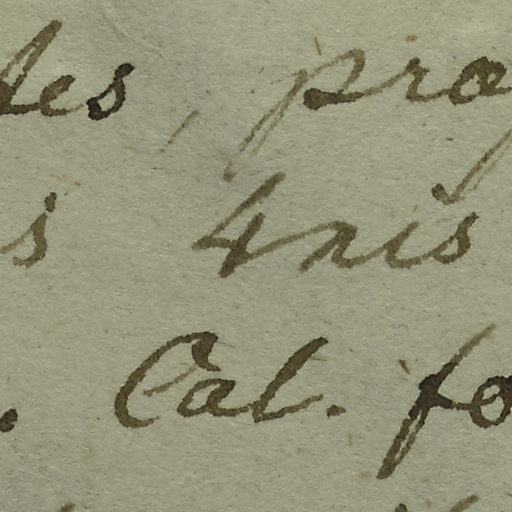 tes, prop
s 4nis
. Cal. fo